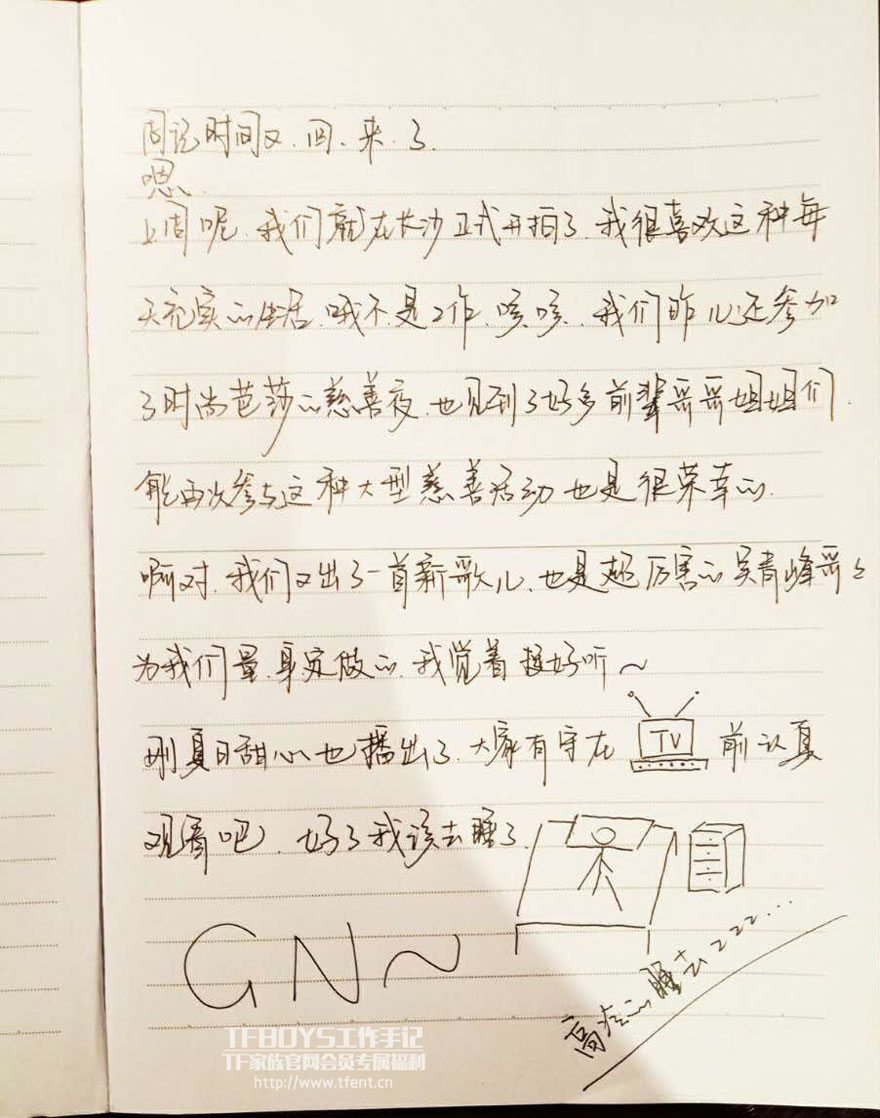 周记时间又.回.来.了.
嗯、
上周呢.我们就在长沙正式开拍了.我很喜欢这种每
天充实的生活.哦不是工作.咳.咳.我们昨儿还参加
了时尚芭莎的慈善夜.也见到了好多前辈哥哥姐姐们.
能再次参与这种大型慈善活动也是很荣幸的.
啊对.我们又出了一首新歌儿.也是超厉害的吴青峰哥哥
为我们量身定做的.我觉着挺好听~
刚夏日甜心也播出了.大家有守在 TV 前认真
观看吧.好了我该去睡了.
GN~
睡去zzz...
TFBOYS工作手记
TF家族官网会员专属福利
http://www.tfent.cn